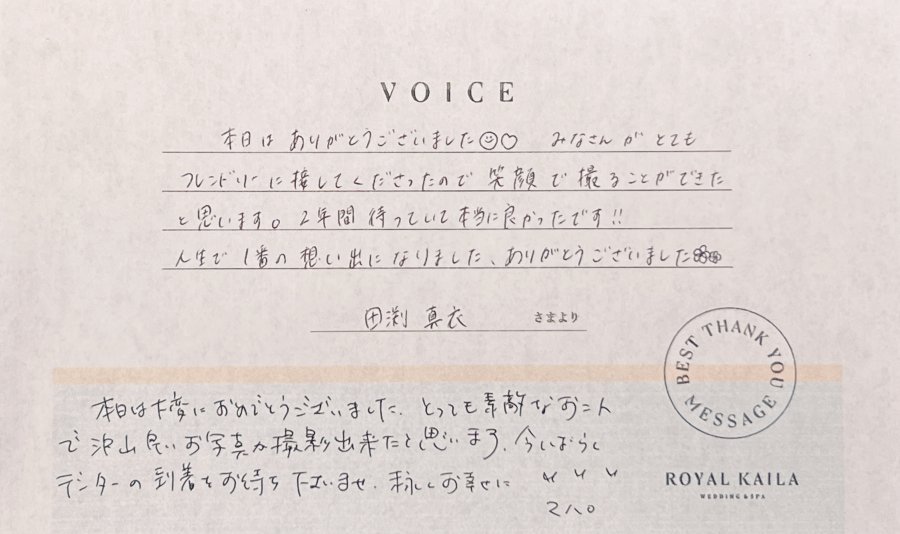 VOICE
本日は ありがとうございました みなさん が とても
フレンドリーに 接してくださったので 笑顔で 撮ることができた
と思います。2年間 待っていて 本当に良かったです!!
人生で 1番の 想い出に なりました、ありがとうございました
田渕 真衣 さまより
BEST THANK YOU MESSAGE
本日は大変に おめでとうございました、とっても素敵なお二人
で 沢山良いお写真が撮影出来たと思います、今しばらく
データーの到着をお待ち下さいませ、末永くお幸せに
ROYAL KAILA
WEDDING & SPA